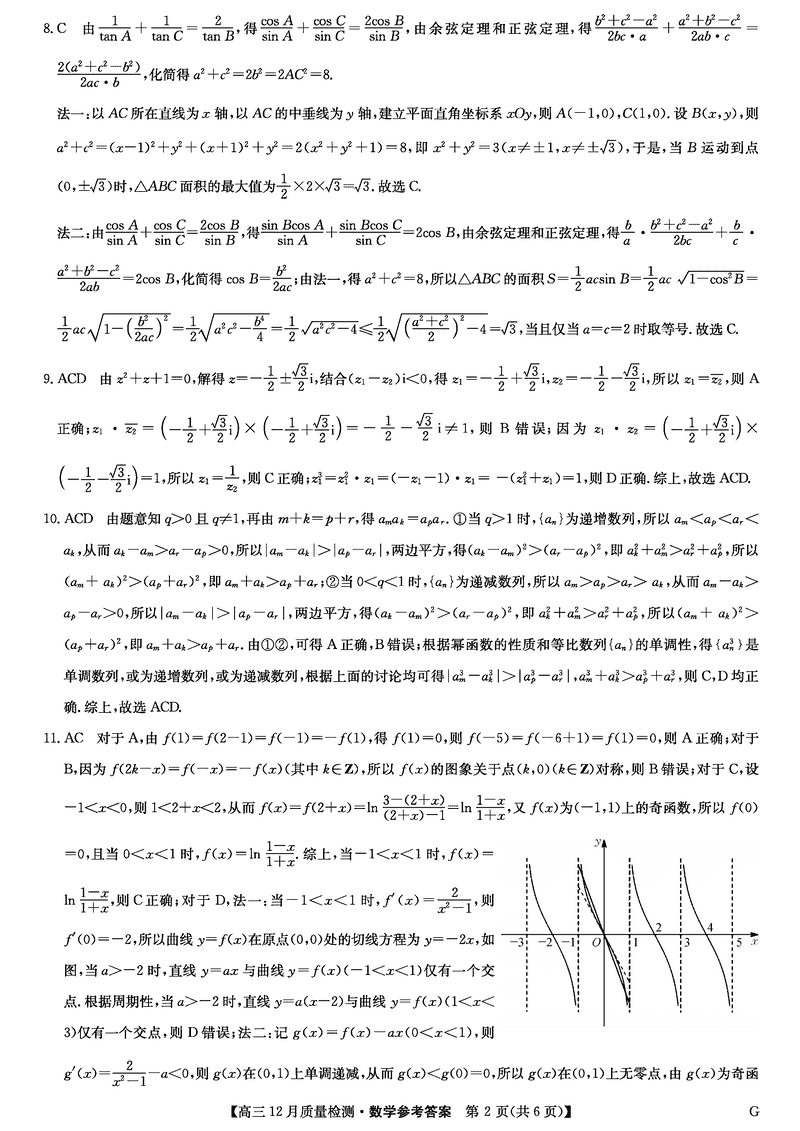 8. C 由 1/tan A + 1/tan C = 2/tan B, 得 cos A/sin A + cos C/sin C = 2cos B/sin B, 由余弦定理和正弦定理, 得 (b²+c²−a²)/(2bc·a) + (a²+b²−c²)/(2ab·c) =
2(a²+c²−b²)/(2ac·b), 化简得 a²+c²=2b²=2AC²=8.
法一:以 AC 所在直线为 x 轴,以 AC 的中垂线为 y 轴,建立平面直角坐标系 xOy,则 A(−1,0),C(1,0). 设 B(x,y),则
a²+c²=(x−1)²+y²+(x+1)²+y²=2(x²+y²+1)=8,即 x²+y²=3(x≠±1,x≠±√3),于是,当 B 运动到点
(0,±√3)时,△ABC 面积的最大值为 1/2×2×√3=√3. 故选 C.
法二:由 cos A/sin A + cos C/sin C = 2cos B/sin B, 得 sin Bcos A/sin A + sin Bcos C/sin C = 2cos B,由余弦定理和正弦定理,得 b/a · (b²+c²−a²)/2bc + b/c ·
(a²+b²−c²)/2ab = 2cos B,化简得 cos B= b²/2ac;由法一,得 a²+c²=8,所以△ABC 的面积 S= 1/2 acsin B= 1/2 ac √(1−cos²B) =
1/2 ac √(1−(b²/2ac)²) = 1/2 √(a²c²−b⁴/4) = 1/2 √(a²c²−4) ≤ 1/2 √(((a²+c²)/2)²−4) =√3,当且仅当 a=c=2 时取等号. 故选 C.
9. ACD 由 z²+z+1=0,解得 z=−1/2±√3/2 i,结合(z₁−z₂)i<0,得 z₁=−1/2+√3/2 i,z₂=−1/2−√3/2 i,所以 z₁=z̄₂,则 A
正确;z₁·z̄₂=(−1/2+√3/2 i)×(−1/2+√3/2 i)=−1/2−√3/2 i≠1,则 B 错误;因为 z₁·z₂=(−1/2+√3/2 i)×
(−1/2−√3/2 i)=1,所以 z₁=1/z₂,则 C 正确;z₁³=z₁²·z₁=(−z₁−1)·z₁=−(z₁²+z₁)=1,则 D 正确. 综上,故选 ACD.
10. ACD 由题意知 q>0 且 q≠1,再由 m+k=p+r,得 aₘaₖ=aₚaᵣ. ①当 q>1 时,{aₙ}为递增数列,所以 aₘ<aₚ<aᵣ<
aₖ,从而 aₖ−aₘ>aᵣ−aₚ>0,所以|aₘ−aₖ|>|aₚ−aᵣ|,两边平方,得(aₖ−aₘ)²>(aᵣ−aₚ)²,即 aₖ²+aₘ²>aᵣ²+aₚ²,所以
(aₘ+aₖ)²>(aₚ+aᵣ)²,即 aₘ+aₖ>aₚ+aᵣ;②当 0<q<1 时,{aₙ}为递减数列,所以 aₘ>aₚ>aᵣ>aₖ,从而 aₘ−aₖ>
aₚ−aᵣ>0,所以|aₘ−aₖ|>|aₚ−aᵣ|,两边平方,得(aₖ−aₘ)²>(aᵣ−aₚ)²,即 aₖ²+aₘ²>aᵣ²+aₚ²,所以(aₘ+aₖ)²>
(aₚ+aᵣ)²,即 aₘ+aₖ>aₚ+aᵣ. 由①②,可得 A 正确,B 错误;根据幂函数的性质和等比数列{aₙ}的单调性,得{aₙ³}是
单调数列,或为递增数列,或为递减数列,根据上面的讨论均可得|aₘ³−aₖ³|>|aₚ³−aᵣ³|,aₘ³+aₖ³>aₚ³+aᵣ³,则 C,D 均正
确. 综上,故选 ACD.
11. AC 对于 A,由 f(1)=f(2−1)=f(−1)=−f(1),得 f(1)=0,则 f(−5)=f(−6+1)=f(1)=0,则 A 正确;对于
B,因为 f(2k−x)=f(−x)=−f(x)(其中 k∈Z),所以 f(x)的图象关于点(k,0)(k∈Z)对称,则 B 错误;对于 C,设
−1<x<0,则 1<2+x<2,从而 f(x)=f(2+x)=ln (3−(2+x))/((2+x)−1)=ln (1−x)/(1+x),又 f(x)为(−1,1)上的奇函数,所以 f(0)
=0,且当 0<x<1 时,f(x)=ln (1−x)/(1+x). 综上,当−1<x<1 时,f(x)=
ln (1−x)/(1+x),则 C 正确;对于 D,法一:当−1<x<1 时,f′(x)=2/(x²−1),则
f′(0)=−2,所以曲线 y=f(x)在原点(0,0)处的切线方程为 y=−2x,如
图,当 a>−2 时,直线 y=ax 与曲线 y=f(x)(−1<x<1)仅有一个交
点. 根据周期性,当 a>−2 时,直线 y=a(x−2)与曲线 y=f(x)(1<x<
3)仅有一个交点,则 D 错误;法二:记 g(x)=f(x)−ax(0<x<1),则
y
−3 −2 −1 O 1 2 3 4 5 x
g′(x)=2/(x²−1)−a<0,则 g(x)在(0,1)上单调递减,从而 g(x)<g(0)=0,所以 g(x)在(0,1)上无零点,由 g(x)为奇函
【高三 12 月质量检测·数学参考答案 第 2 页(共 6 页)】 G